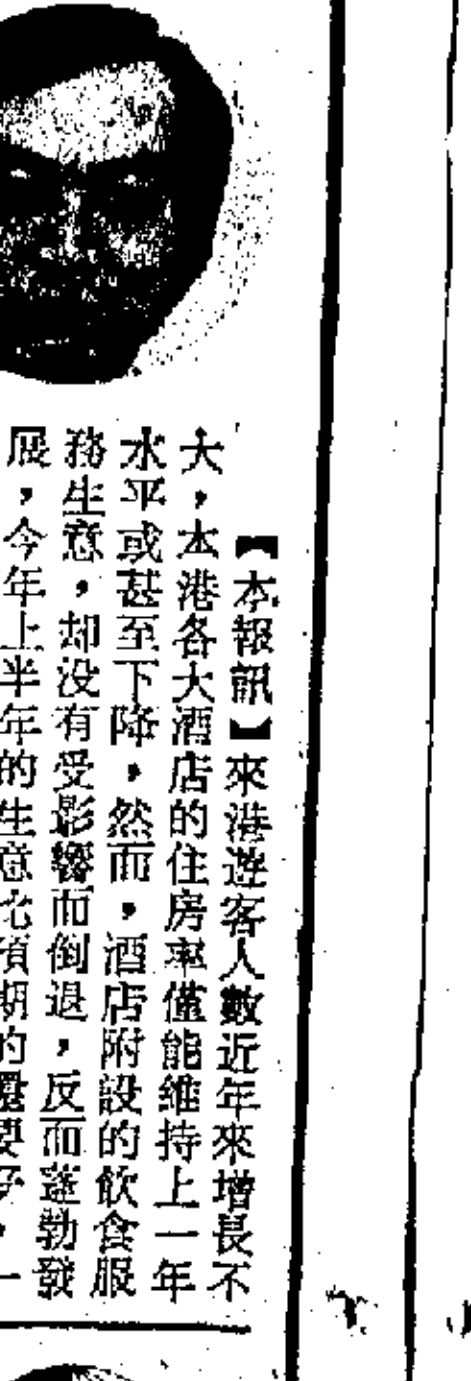 【本報訊】來港遊客人數近年來增長不
大，本港各大酒店的住房率僅能維持上一年
水平或甚至下降，然而，酒店附設的飲食服
務生意，却没有受影響而倒退，反而蓬勃發
展，今年上半年的生意比預期的還要好，一